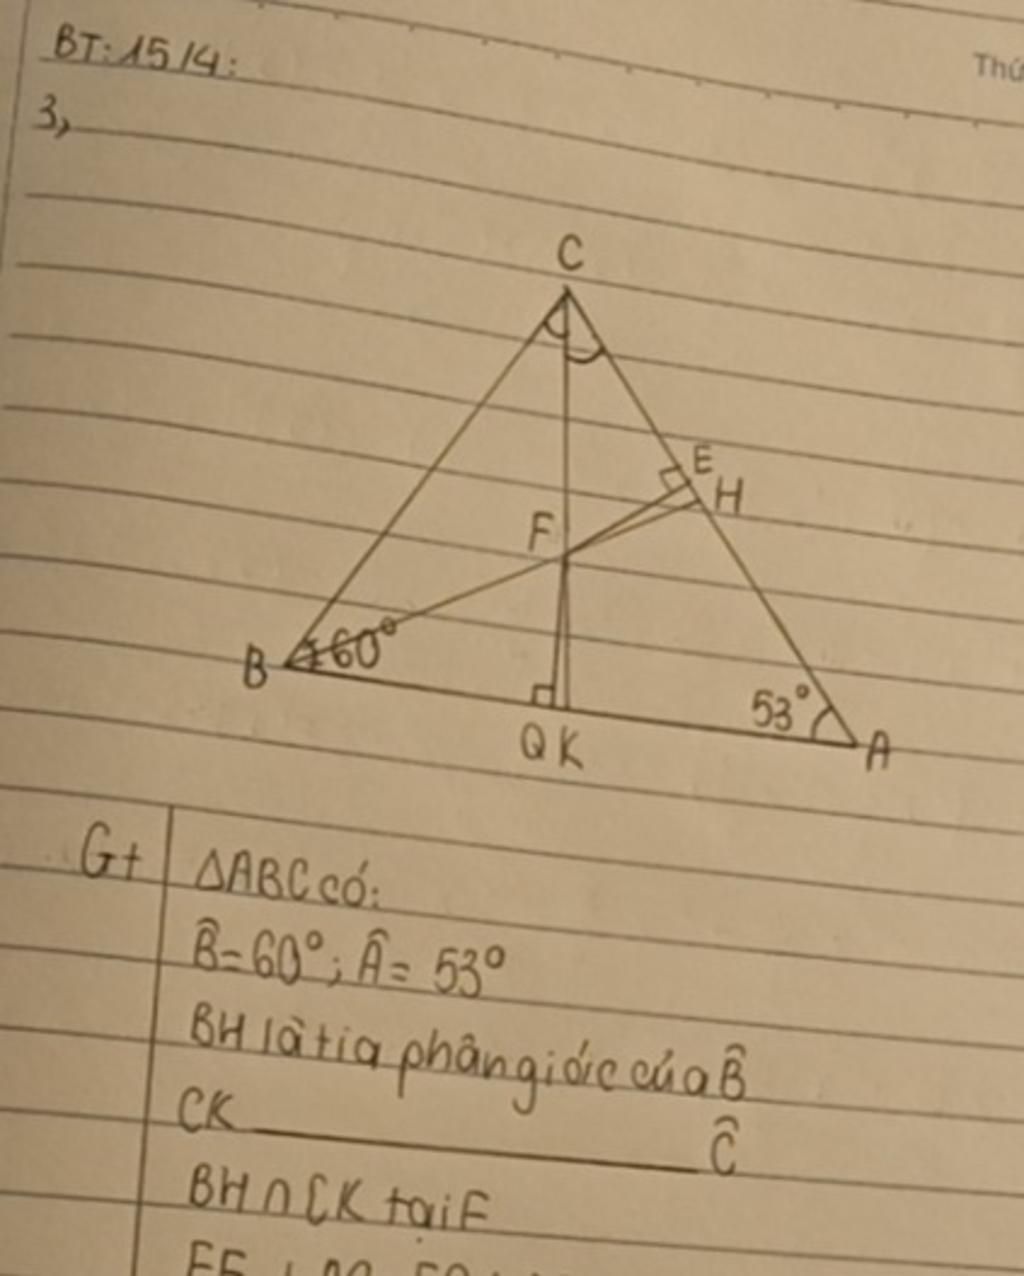 Thứ
BT: 15/4:
3,
C
E
H
F
B
60°
53°
A
Q K
Gt
ΔABC có:
B̂=60°; Â= 53°
BH là tia phân giác của B̂
CK ________ Ĉ
BH ∩ CK tại F